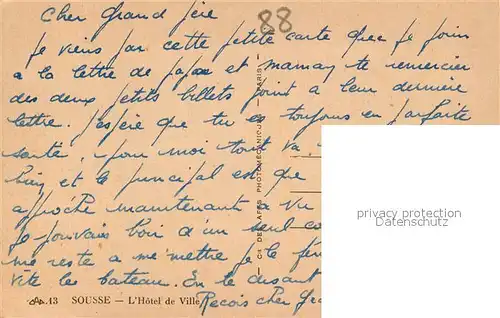 Cher Grand père
88
je viens par cette petite carte que je joins
a la lettre de papa et maman te remercier
des deux petits billets joint a leur dernière
lettre. J'espère que tu es toujours en parfaite
santé, pour moi tout va
bien et le principal est que
approche maintenant a vu
Je pouvais d'un seul
me reste a me mettre je le
vite les bateau. En te disant
Recois cher
Cie DES ARTS PHOTOMÉCANIQUES — PARIS
13 SOUSSE — L'Hôtel de Ville
privacy protection